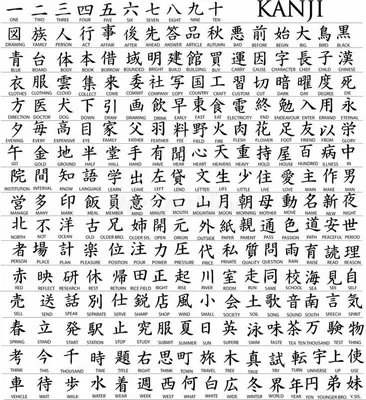 一 二 三 四 五 六 七 八 九 十 KANJI
ONE TWO THREE FOUR FIVE SIX SEVEN EIGHT NINE TEN
図 族 人 行 事 後 先 答 品 秋 悪 前 始 大 鳥 黒
DRAWING FAMILY PERSON ACT AFFAIR AFTER AHEAD ANSWER ARTICLE AUTUMN BAD BEFORE BEGIN BIG BIRD BLACK
青 台 体 本 借 域 明 建 館 買 運 因 字 長 子 漢
BLUE BOARD BODY BOOK BORROW BRIGHT BUILD BUY CARRY CAUSE CHARACTER CHIEF CHILD CHINESE
衣 服 雲 集 来 委 社 写 国 工 習 切 暗 曜 度 死
CLOTHES CLOTHING CLOUD COLLECT COME COMMIT COMPANY COPY COUNTRY CRAFT CUT DARK DAY DEGREE DEATH
方 医 犬 下 引 画 飲 早 東 食 電 終 勉 入 用 永
DIRECTION DOCTOR DOG DOWN DRAW DRAWING DRINK EARLY EAST EAT ELECTRICITY END ENDEAVOUR ENTER ETERNAL
夕 毎 高 目 家 父 羽 料 野 火 肉 花 足 友 以
EVENING EVERY EXPENSIVE EYE FAMILY FATHER FEATHER FEE FIELD FIRE FLESH FLOWER FOOT FRIEND FROM
行 金 地 半 堂 手 有 聞 心 天 重 持 屋 百 病 中
GO GOLD GROUND HALF HALL HAND HAVE HEAR HEART HEAVENS HEAVY HOLD HOUSE HUNDRED ILLNESS IN
院 間 知 語 学 出 左 貸 文 生 少 住 愛 主 作 男
INSTITUTION INTERVAL KNOW LANGUAGE LEARN LEAVE LEFT LEND LETTER LIFE LITTLE LIVE LOVE MAIN MAKE MAN
営 多 印 飯 員 意 分 口 山 月 朝 母 動 名 新 夜
MANAGE MANY MARK MEAL MEMBER MIND MINUTE MOUTH MOUNTAIN MOON MORNING MOTHER MOVE NAME NEW NIGHT
北 不 洋 古 兄 姉 開 元 外 紙 親 通 色 道 安 世
NORTH NOT OCEAN OLD OLDER BRO. OLDER SIS. OPEN ORIGIN OUTSIDE PAPER PARENT PASS PASSION PATH PEACEFUL PERIOD
者 場 計 楽 位 注 力 圧 代 私 質 問 雨 育 読 理
PERSON PLACE PLAN PLEASURE POSITION POUR POWER PRESSURE PRICE PRIVATE QUALITY QUESTION RAIN RAISE READ REASON
赤 映 研 休 帰 田 正 起 川 室 走 同 校 海 見 自
RED REFLECT RESEARCH REST RETURN RICE FIELD RIGHT RISE RIVER ROOM RUN SAME SCHOOL SEA SEE SELF
売 送 話 別 仕 鋭 店 風 小 会 土 歌 音 南 言 気
SELL SEND SPEAK SEPARATE SERVE SHARP SHOP WIND SMALL SOCIETY SOIL SONG SOUND SOUTH SPEECH SPIRIT
春 立 発 駅 止 究 服 夏 日 英 泳 味 茶 万 験 物
SPRING STAND START STATION STOP STUDY SUBMIT SUMMER SUN SUPERB SWIM TASTE TEA TEN THOUSAND TEST THING
考 今 千 時 題 右 思 町 旅 木 真 試 転 宇 上 使
THINK THIS THOUSAND TIME TITLE RIGHT THINK TOWN TRAVEL TREE TRUE TRY TURN UNIVERSE UP USE
車 待 歩 水 着 週 西 何 白 広 冬 界 年 円 弟 妹
VEHICLE WAIT WALK WATER WEAR WEEK WEST WHAT WHITE WIDE WINTER WORLD YEAR YEN YOUNGER BRO. Y. SIS.